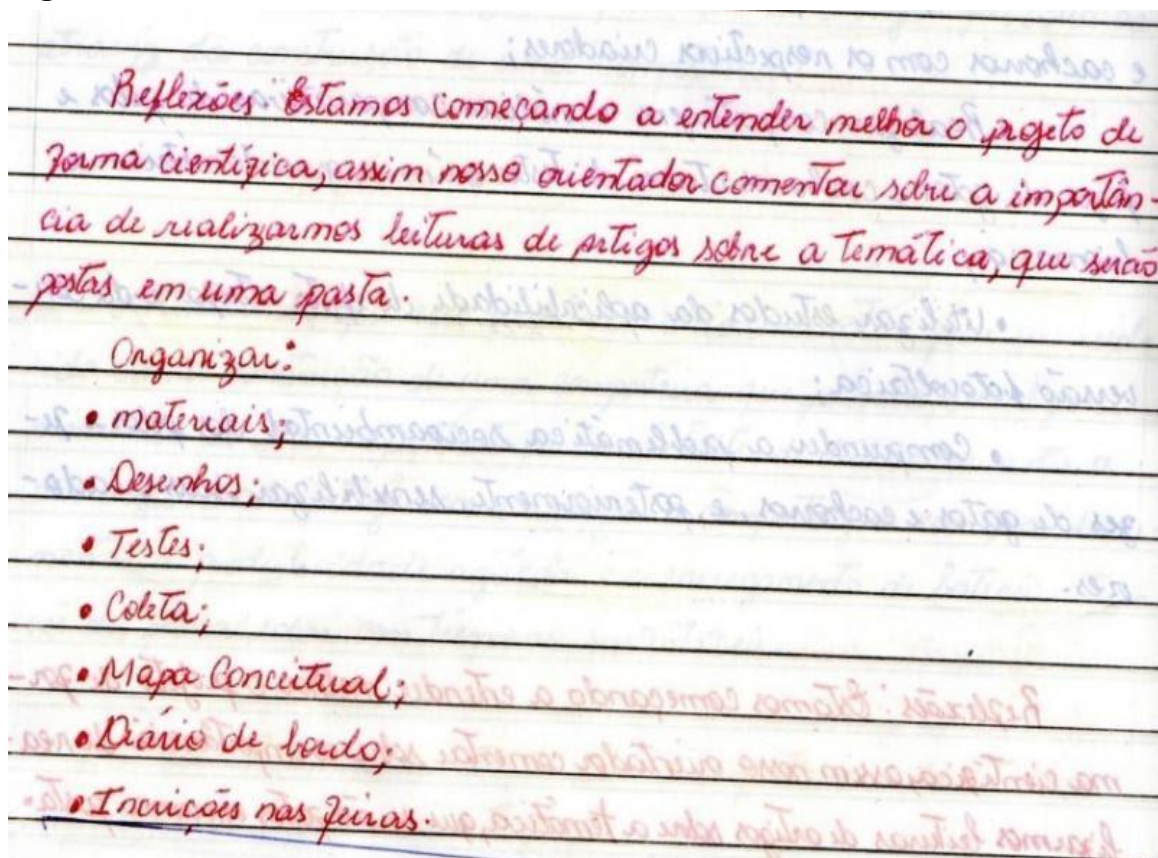 Reflexões: Estamos começando a entender melhor o projeto de
forma científica, assim nosso orientador comentou sobre a importân-
cia de realizarmos leituras de artigos sobre a temática, que serão
postas em uma pasta.
Organizar:
• materiais;
• Desenhos;
• Testes;
• Coleta;
• Mapa Conceitual;
• Diário de bordo;
• Incrições nas feiras.